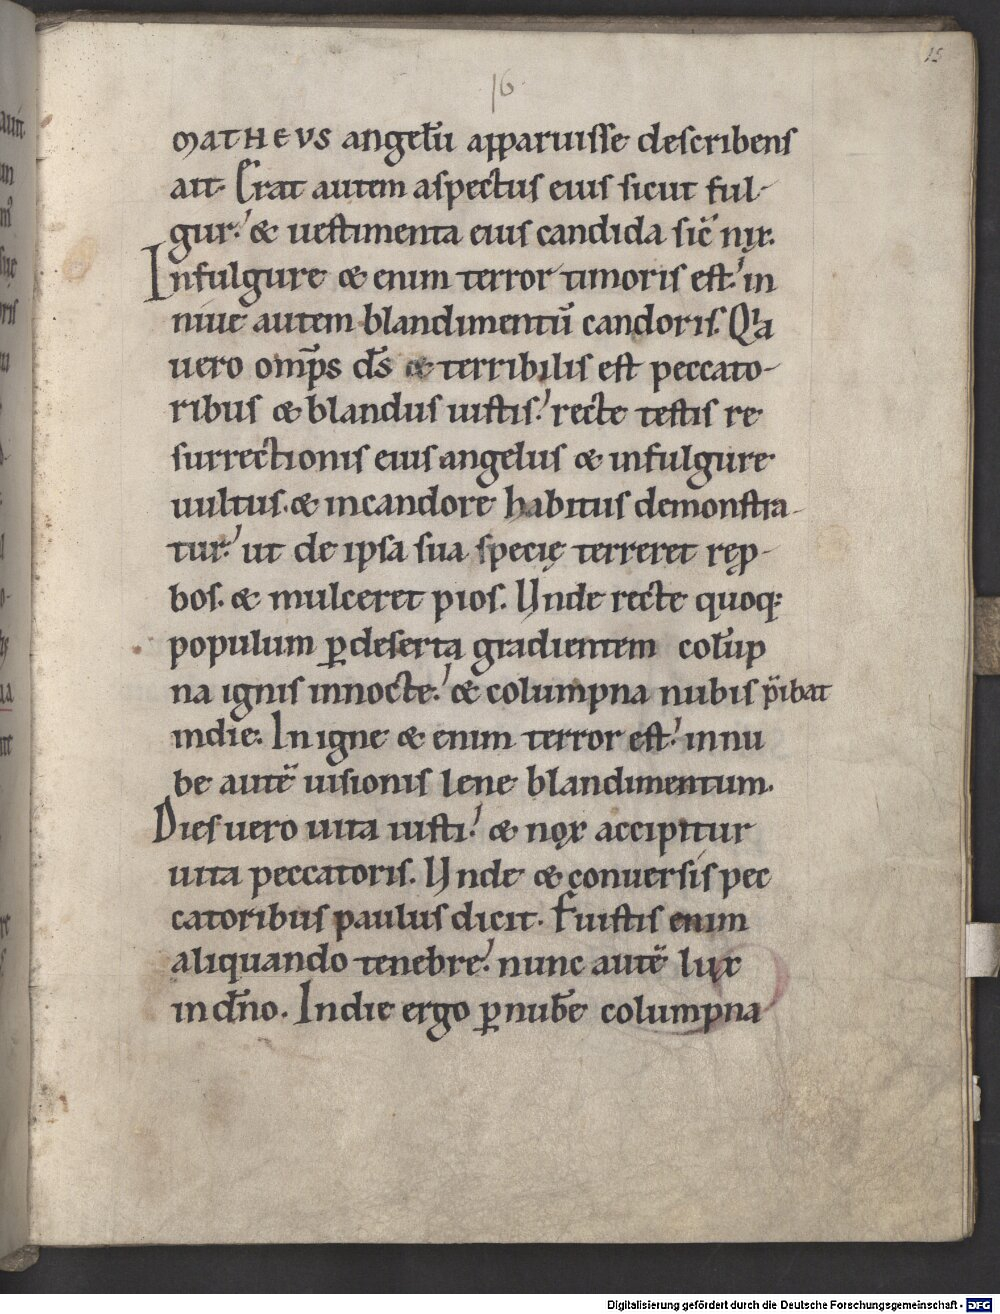 15
16
MATHEVS angelū apparuisse describens
ait. Erat autem aspectus eius sicut ful-
gur. & uestimenta eius candida sic̄ nix.
Infulgure & enim terror timoris est. in
niue autem blandimentū candoris. Qa
uero omp̄s ds̄ & terribilis est peccato-
ribus & blandus iustis. recte testis re
surrectionis eius angelus & infulgure
uultus. & incandore habitus demonstra-
tur. ut de ipsa sua specię terreret rep̱-
bos. & mulceret pios. Unde recte quoq;
populum ꝑdeserta gradientem colūp
na ignis innocte. & columpna nubis p̄ibat
indie. Inigne & enim terror est. innu
be autē uisionis lene blandimentum.
Dies uero uita iusti. & nox accipitur
uita peccatoris. Unde & conuersis pec
catoribus paulus dicit. Fuistis enim
aliquando tenebre. nunc autē lux
in dn̄o. Indie ergo ꝑnubē columpna
Digitalisierung gefördert durch die Deutsche Forschungsgemeinschaft - DFG